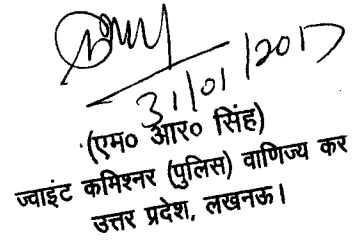 31/01/2017
(एम० आर० सिंह)
ज्वाइंट कमिश्नर (पुलिस) वाणिज्य कर
उत्तर प्रदेश, लखनऊ।